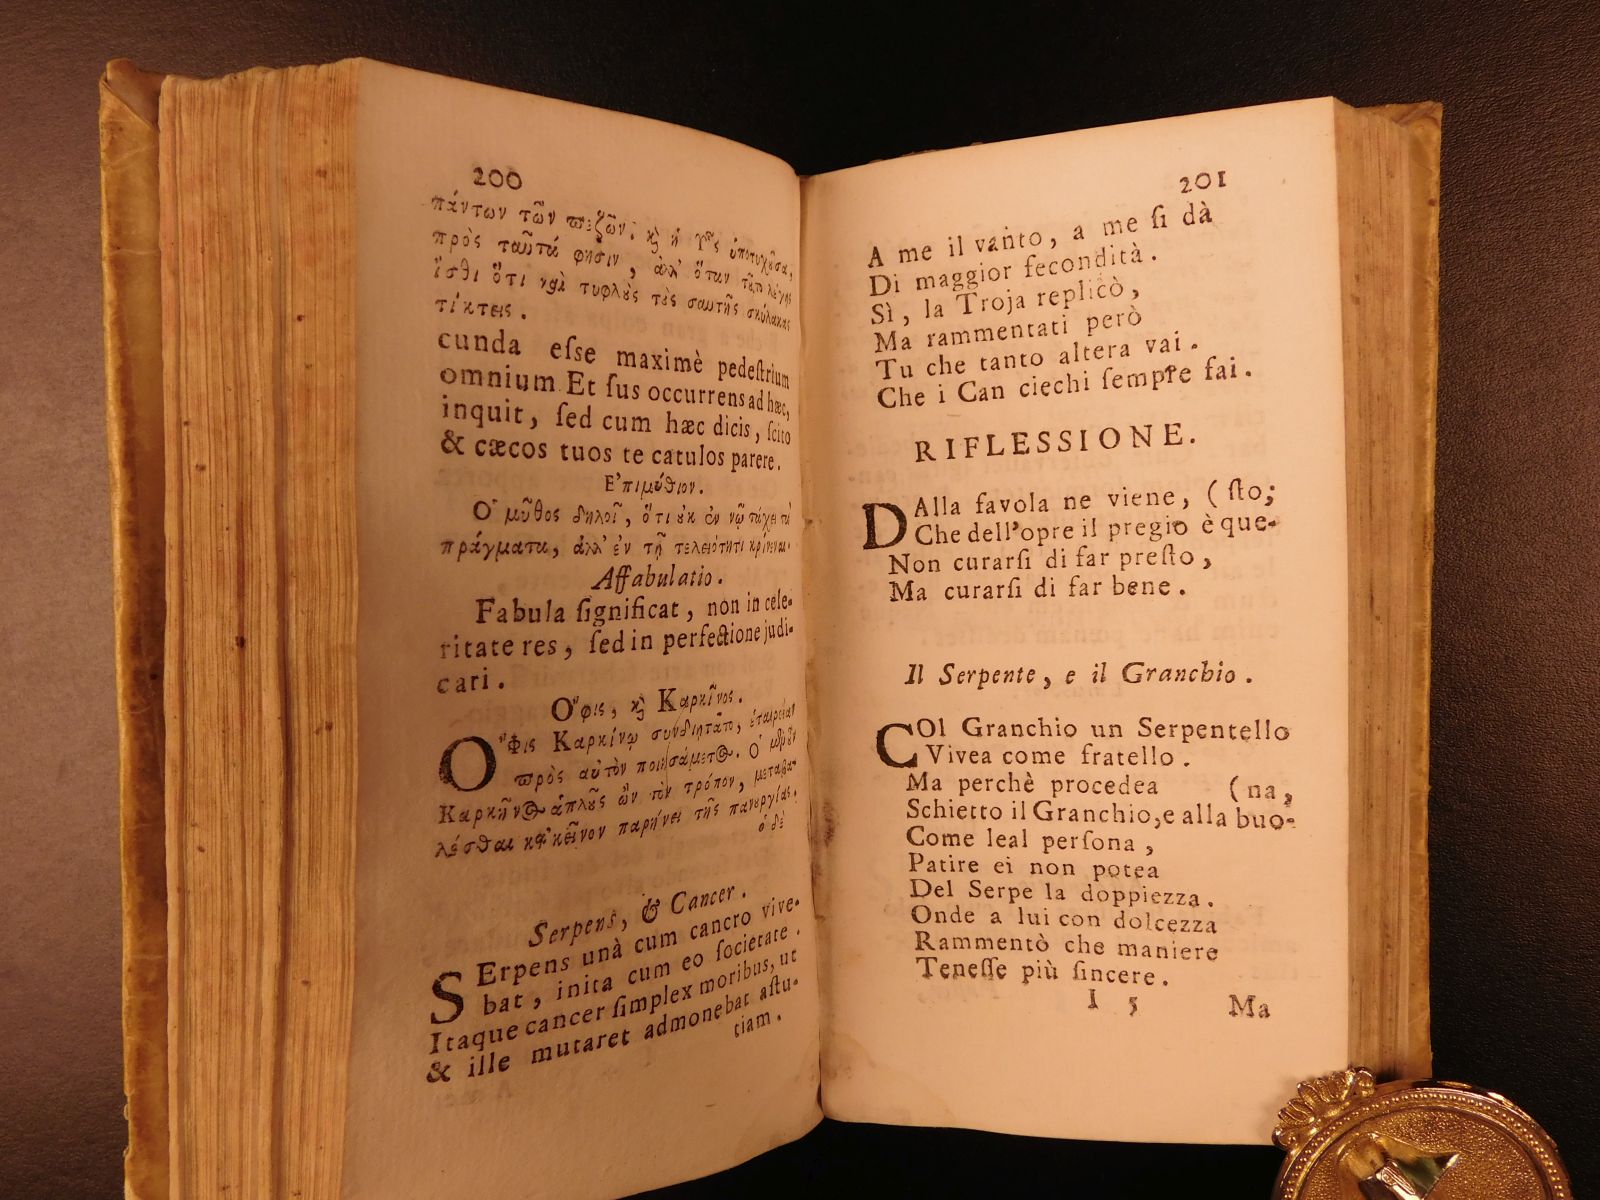 200
πάντων τῶν πεζῶν. ϗ ἡ ὗς ὑποτυχοῦσα,
πρὸς ταῦτά φησιν, ἀλλ' ὅταν τοῦτο λέγῃς
ἴσθι ὅτι καὶ τυφλοὺς τοὺς σαυτῆς σκύλακας
τίκτεις.
cunda eſſe maximè pedeſtrium
omnium Et ſus occurrens ad hæc,
inquit, ſed cum hæc dicis, ſcito
& cæcos tuos te catulos parere.
Ε'πιμύθιον.
Ο' μῦθος δηλοῖ, ὅτι οὐκ ἐν τῷ τάχει τὰ
πράγματα, ἀλλ' ἐν τῇ τελειότητι κρίνεται.
Affabulatio.
Fabula ſignificat, non in cele-
ritate res, ſed in perfectione judi-
cari.
Ο῎φις, ϗ Καρκῖνος.
Ο῎Φις Καρκίνῳ συνδιητᾶτο, ἑταιρείαν
πρὸς αὐτὸν ποιησάμενος. Ο' μὲν οὖν
Καρκῖνος ἁπλοῦς ὢν τὸν τρόπον, μεταβα-
λέσθαι κᾀκεῖνον παρῄνει τῆς πανουργίας.
ὁ δὲ
Serpens, & Cancer.
SErpens unà cum cancro vive-
bat, inita cum eo ſocietate.
Itaque cancer ſimplex moribus, ut
& ille mutaret admonebat aſtu-
tiam.
201
A me il vanto, a me ſi dà
Di maggior fecondità.
Sì, la Troja replicò,
Ma rammentati però
Tu che tanto altera vai.
Che i Can ciechi ſempre fai.
RIFLESSIONE.
DAlla favola ne viene, (ſto;
Che dell'opre il pregio è que-
Non curarſi di far preſto,
Ma curarſi di far bene.
Il Serpente, e il Granchio.
COl Granchio un Serpentello
Vivea come fratello.
Ma perchè procedea (na,
Schietto il Granchio, e alla buo-
Come leal perſona,
Patire ei non potea
Del Serpe la doppiezza.
Onde a lui con dolcezza
Rammentò che maniere
Teneſſe più ſincere.
I 5 Ma